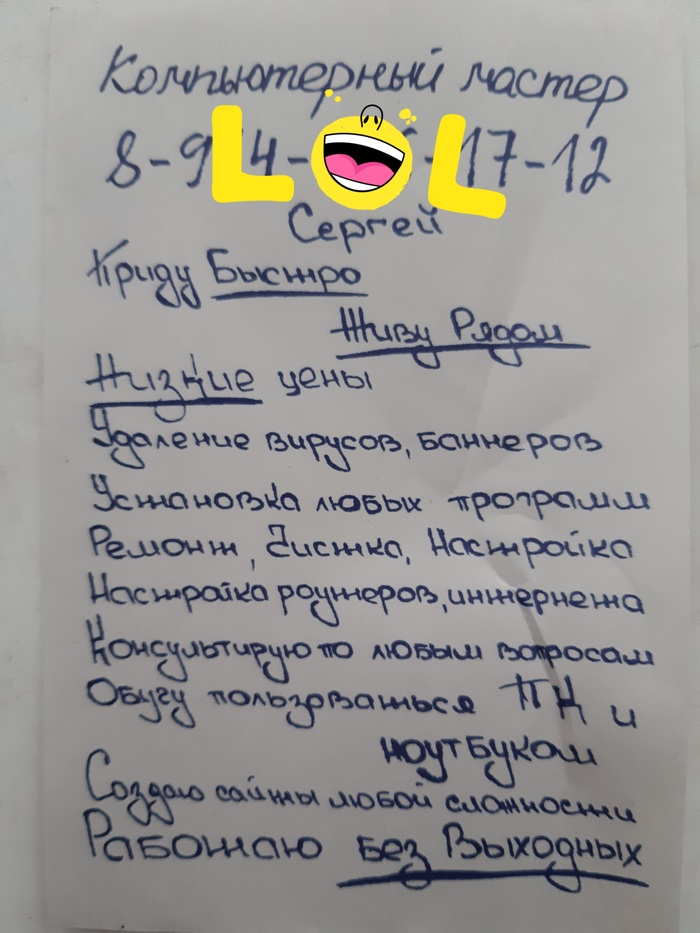 Компьютерный мастер
8-9 4- -17-12
LOL
Сергей
Приду Быстро
Живу Рядом
Низкие цены
Удаление вирусов, баннеров
Установка любых программ
Ремонт, Чистка, Настройка
Настройка роутеров, интернета
Консультирую по любым вопросам
Обучу пользоваться ПК и
ноутбуком
Создаю сайты любой сложности
Работаю Без Выходных